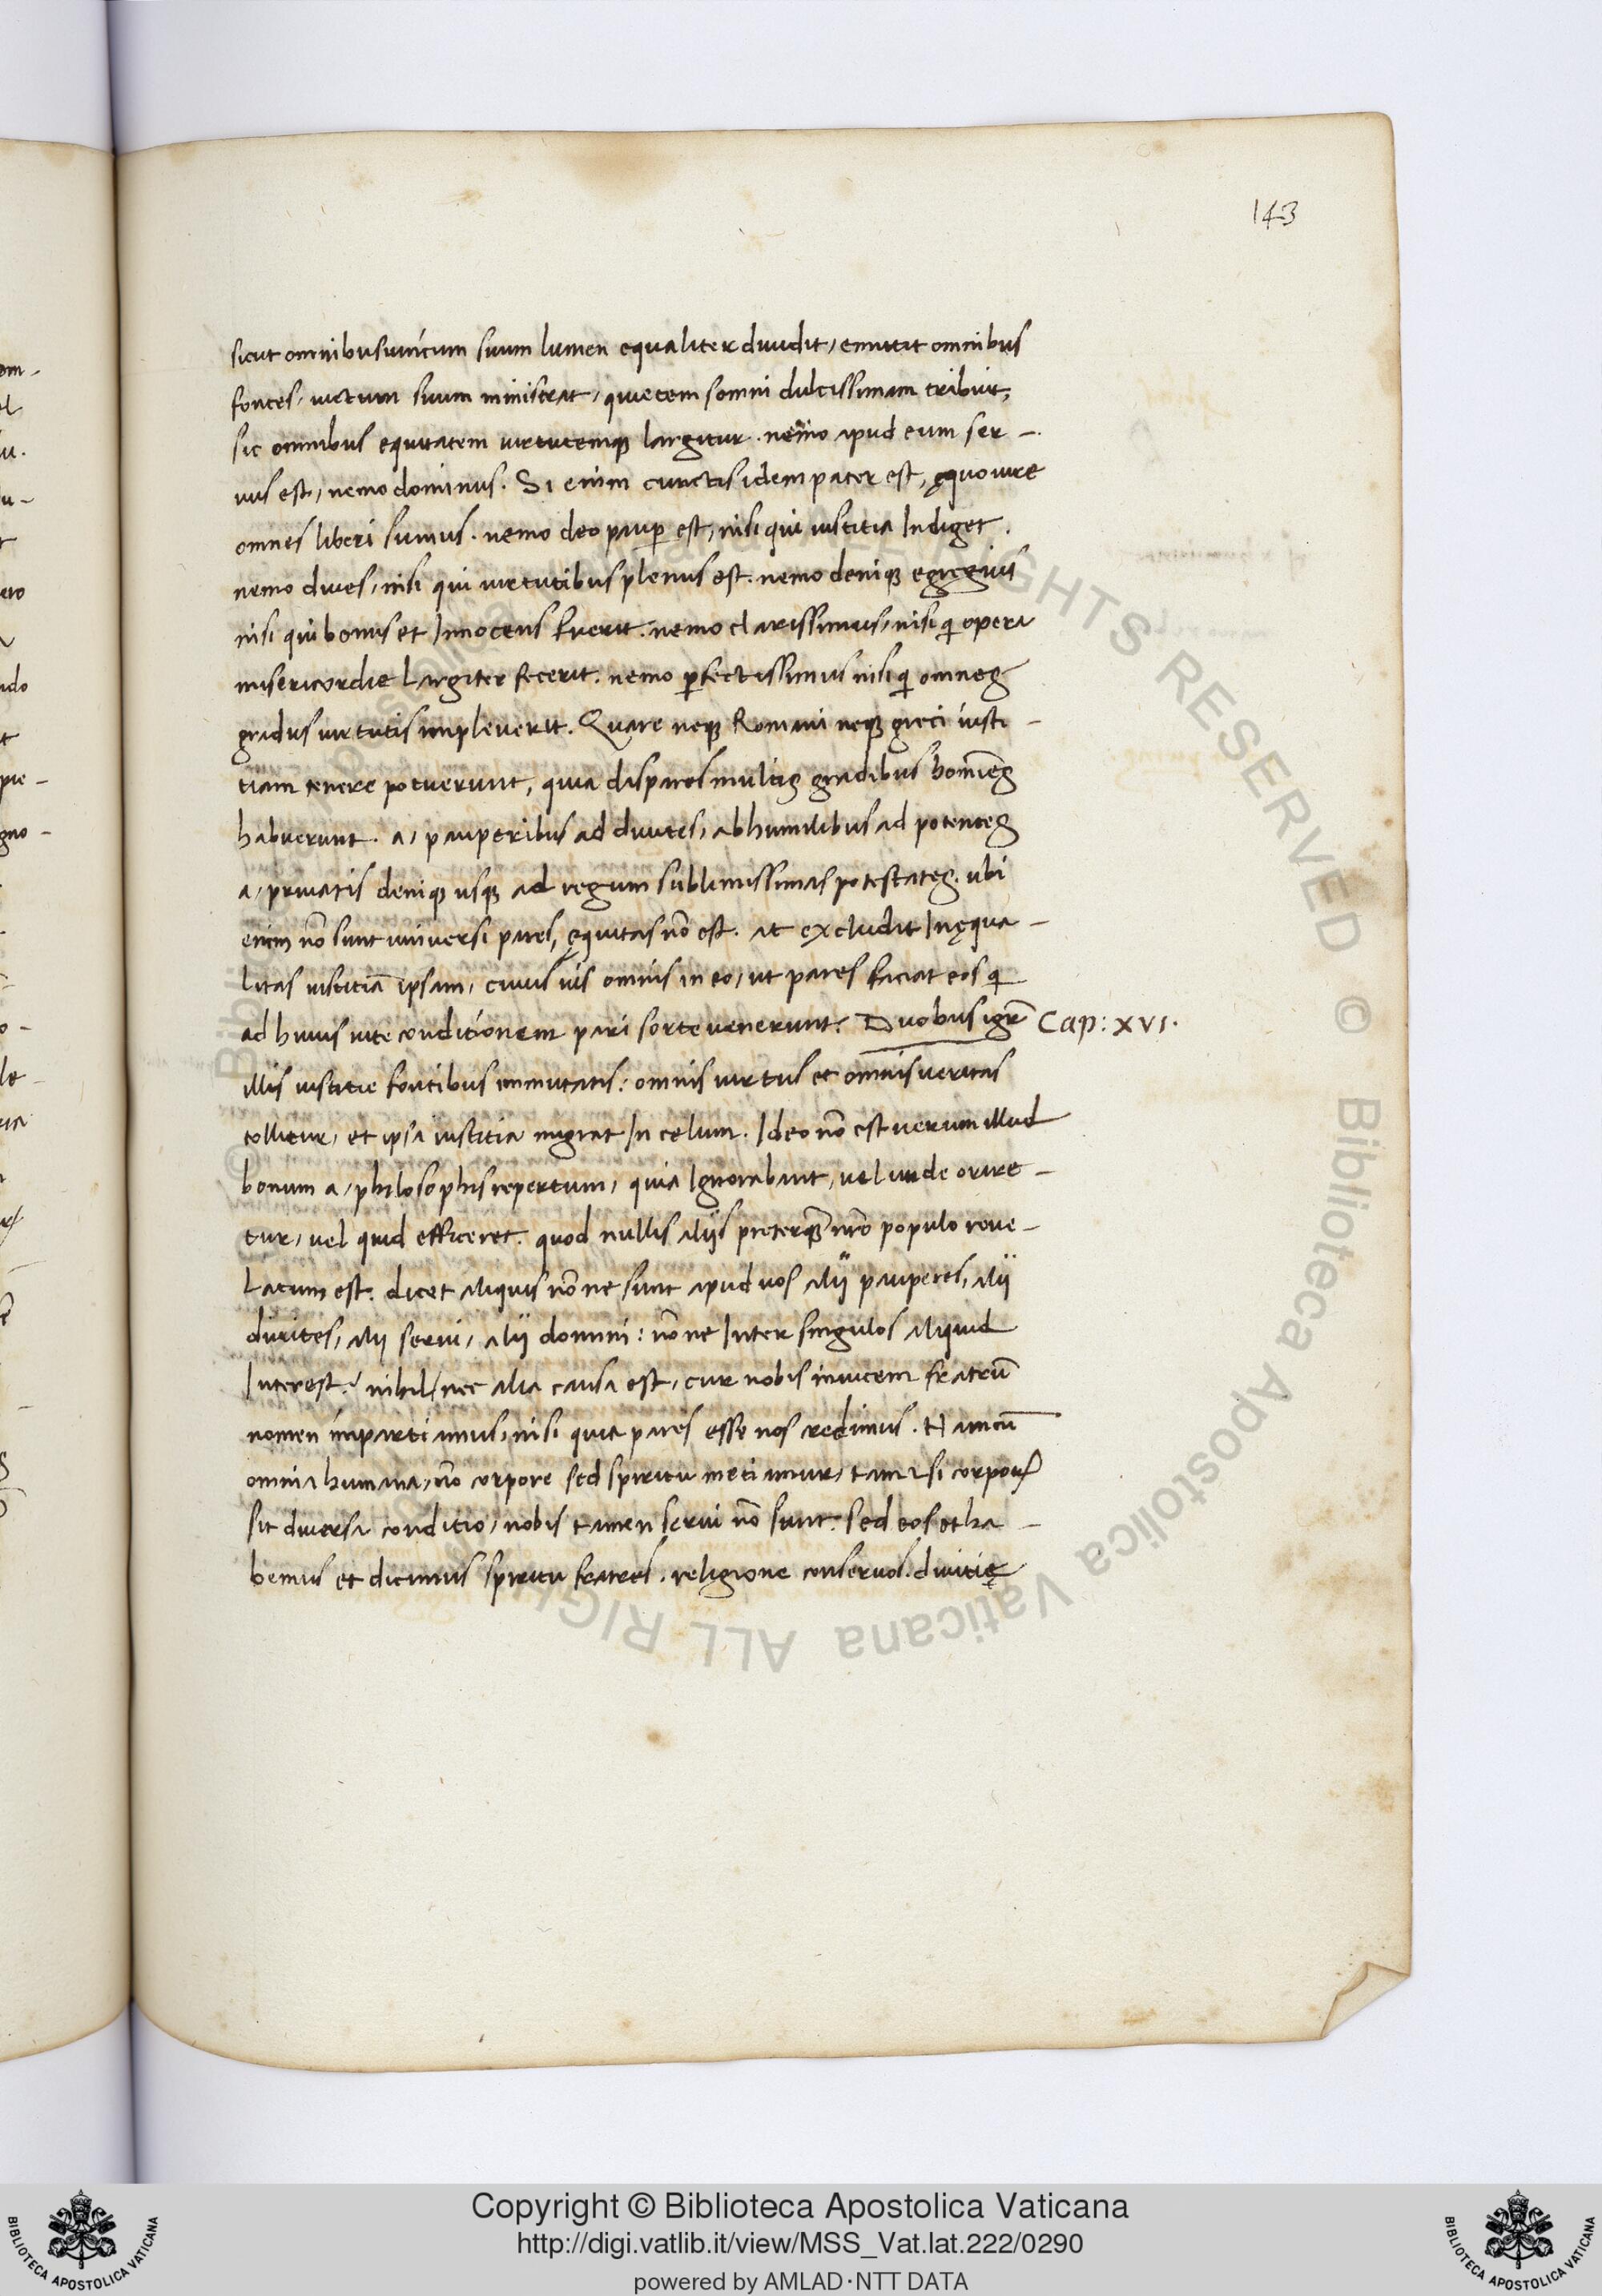 143
sicut omnibus unicum suum lumen equaliter diuidit, emittit omnibus
fontes, uictum suum ministrat, quietem somni dulcissimam tribuit,
sic omnibus equitatem uirtutemqꝫ largitur. nemo apud eum ser-
uus est, nemo dominus. Si enim cunctis idem pater est, ęquo iure
omnes liberi sumus. nemo deo paup̲ est, nisi qui iustitia Indiget.
nemo diues, nisi qui uirtutibus plenus est. nemo deniqꝫ egregius
nisi qui bonus et Innocens fuerit. nemo clarissimus, nisi q̇ opera
misericordie Largiter fecerit. nemo ꝑfectissimus nisi q̇ omnes
gradus uirtutis impleuerit. Quare neqꝫ Romani neqꝫ greci iusti-
tiam tenere potuerunt, quia dispares multis gradibus homīes
habuerunt. a, pauperibus ad diuites, ab humilibus ad potentes
a, priuatis deniqꝫ usqꝫ ad regum sublimissimas potestates. ubi
enim nō sunt uniuersi pares, ęquitas nō est. at excludit Inęqua-
litas iustitiā ipsam, cuius uis omnis in eo, ut pares faciat eos q̇
ad huius uite conditionem pari sorte uenerunt. Duobus igr̄ Cap: XVI.
illis iustitie fontibus immutatis: omnis uirtus et omnis ueritas
tollitur, et ipsa iustitia migrat In celum. Ideo nō est uerum illud
bonum a, philosophis repertum, quia Ignorabant, uel unde orire-
tur, uel quid efficeret. quod nullis aliis preterqꝫ̄ nr̄o populo reue-
Latum est. dicet aliquis nōne sunt apud uos alii pauperes, alii
diuites, alii serui, alii domini: nōne Inter singulos aliquid
Interest? nihil, nec alia causa est, cur nobis inuicem fratrū
nomen impartiamus, nisi quia pares esse nos credimus. Nam cū
omnia humana, nō corpore sed spiritu metiamur, tametsi corporꝫ
sit diuersa conditio, nobis tamen serui nō sunt. sed eos et ha-
bemus et dicimus spiritu fratres. religione conseruos. diuitię
Copyright © Biblioteca Apostolica Vaticana
http://digi.vatlib.it/view/MSS_Vat.lat.222/0290
powered by AMLAD·NTT DATA